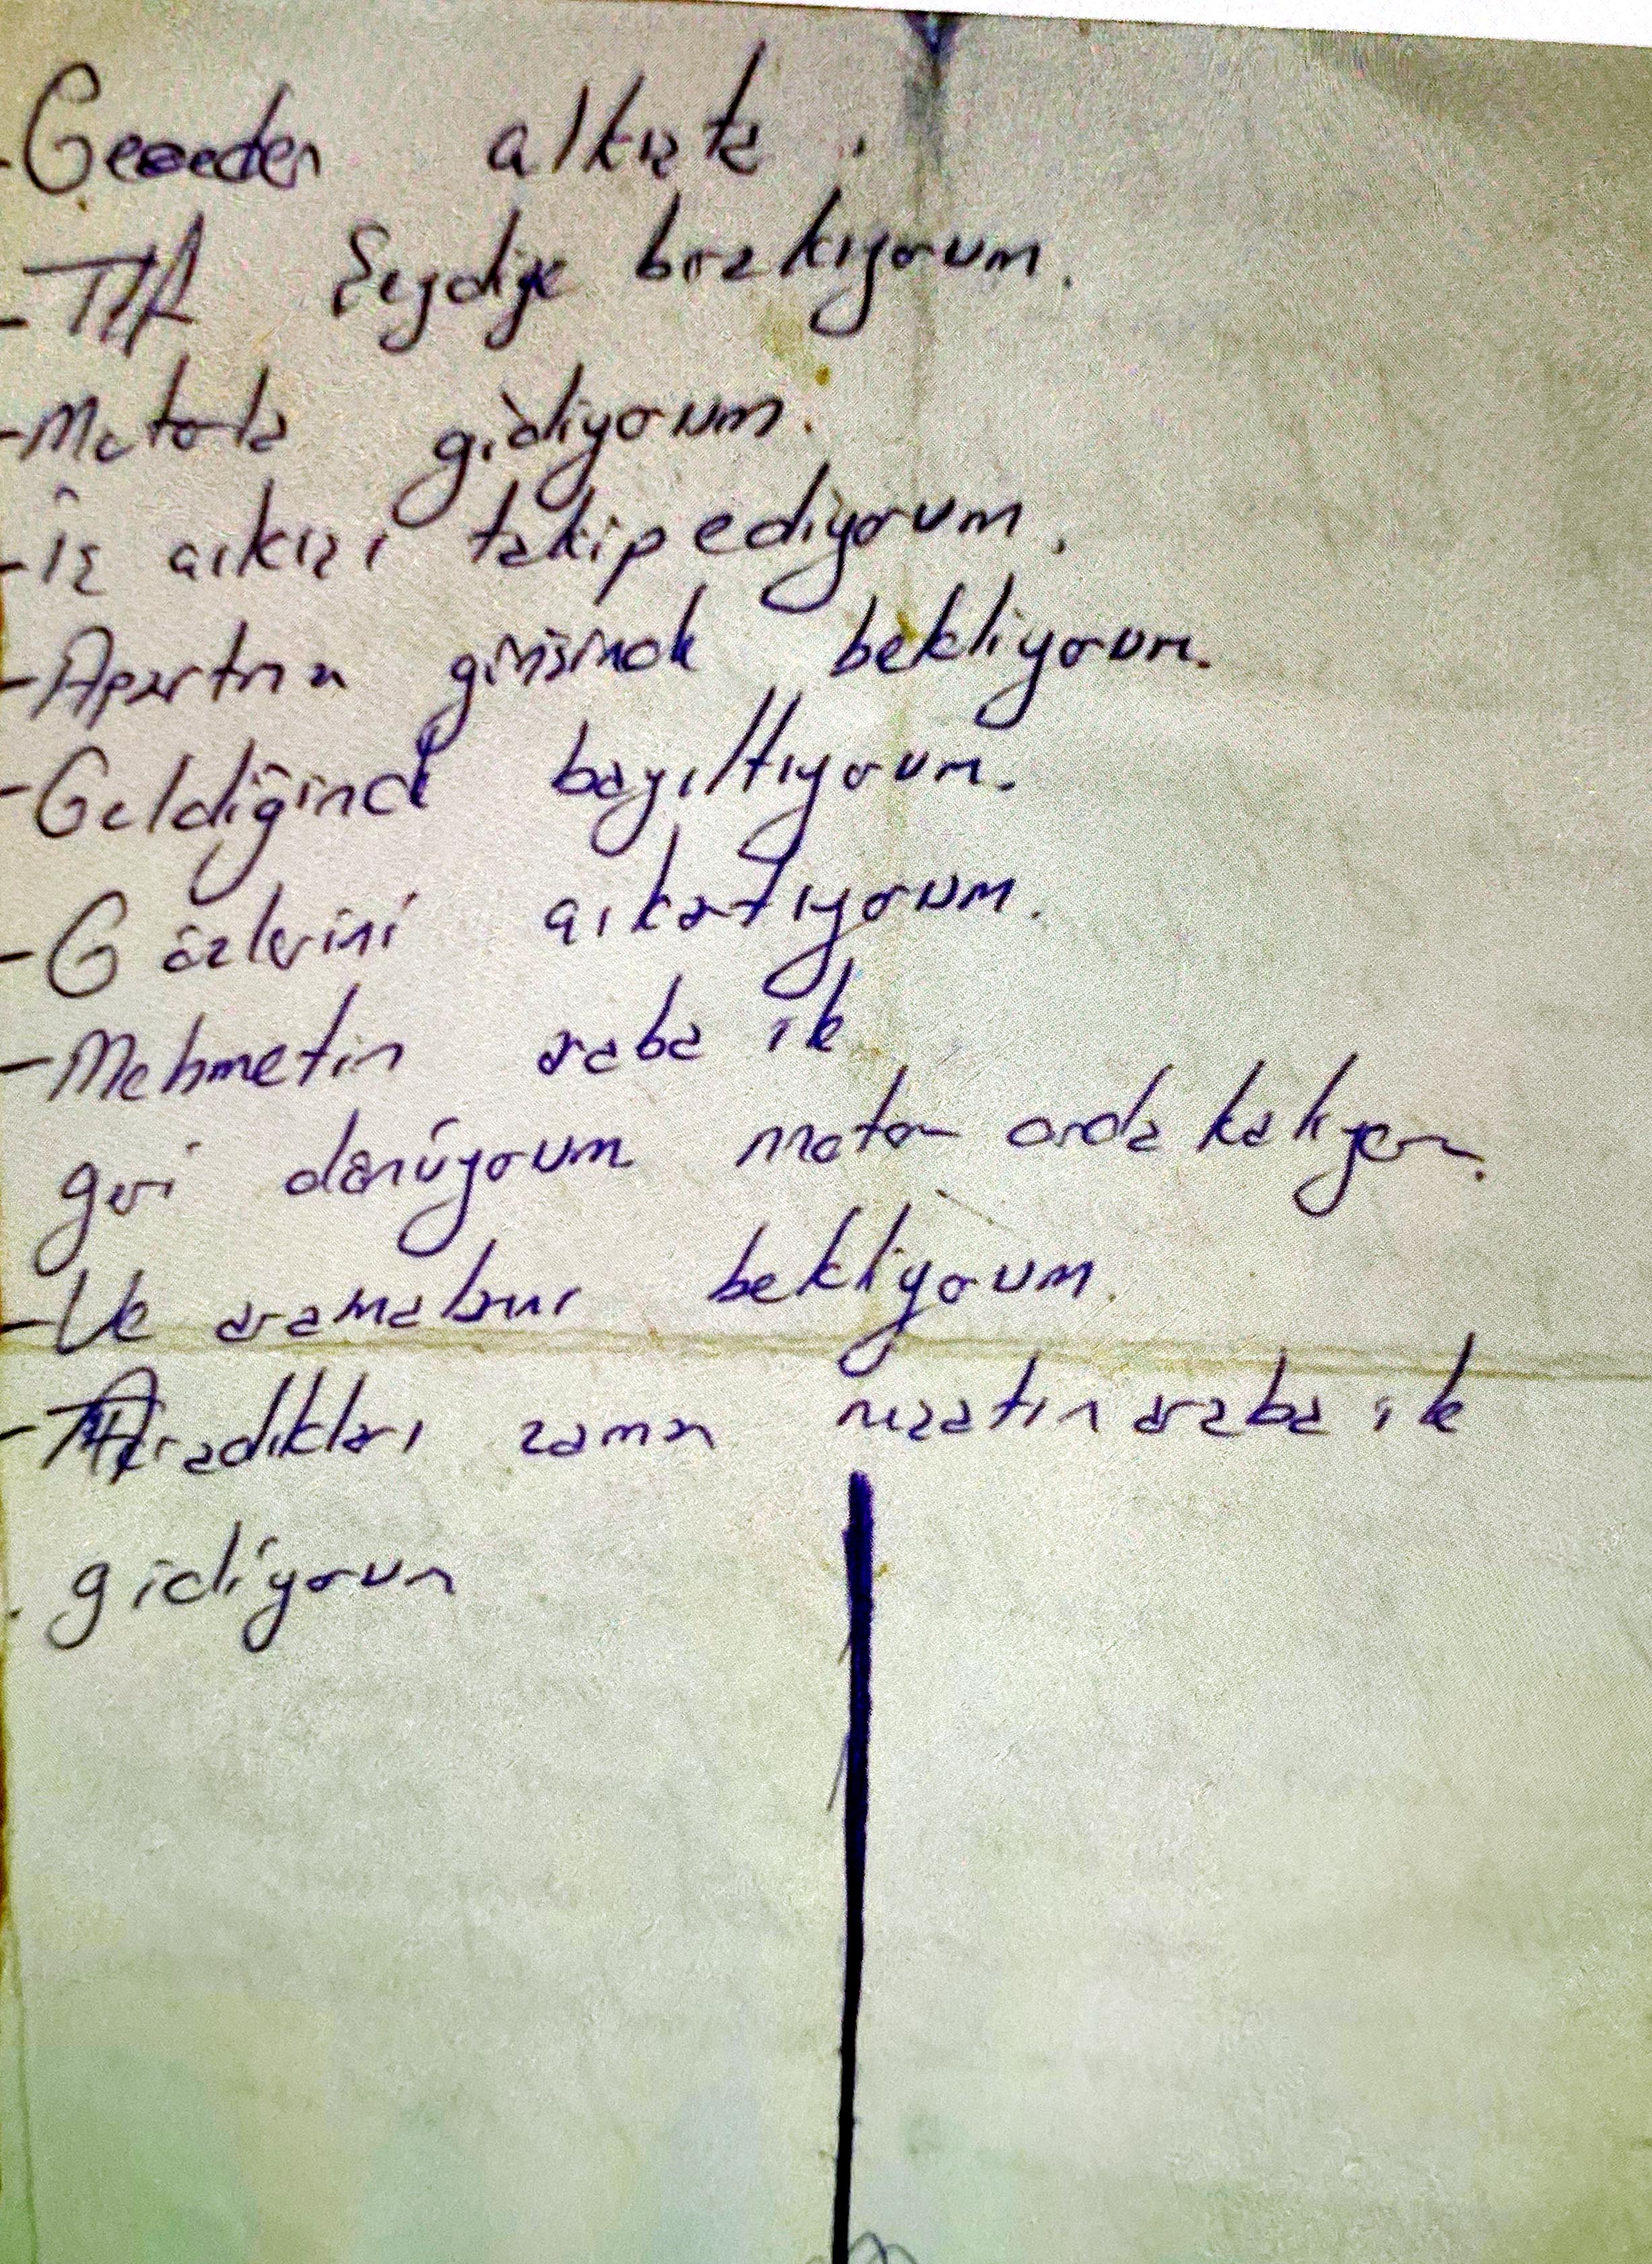 - Geceden alkızta.
- TIR Seydiye bırakıyorum.
- Motorla gidiyorum.
- İş çıkışı takip ediyorum.
- Apartman girişinde bekliyorum.
- Geldiğinde bayıltıyorum.
- Gözlerini çıkartıyorum.
- Mehmetin araba ile
geri dönüyorum motor orda kalıyor.
- Ve aramalarını bekliyorum.
- Aradıkları zaman araba ile
gidiyorum